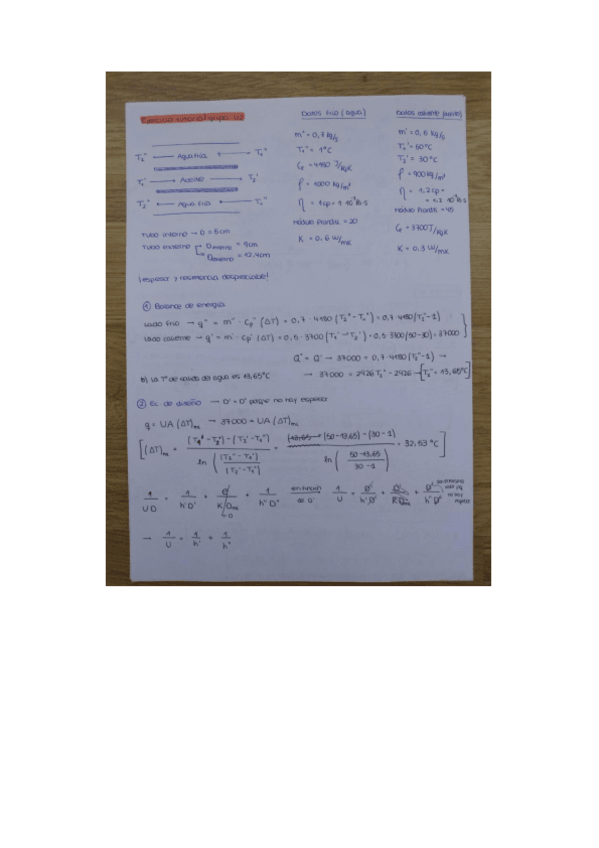 Ejercicio tutorial grupo W
Datos frío (agua)
Datos caliente (aceite)
m" = 0,7 kg/s
T₁" = 1°C
Cp = 4180 J/kgK
ρ = 1000 kg/m³
η = 1cp = 1·10⁻³ Pa·s
módulo Prandtl = 20
K = 0,6 W/mK
m' = 0,5 kg/s
T₁' = 50°C
T₂' = 30°C
ρ = 900 kg/m³
η = 1,2cp =
módulo Prandtl = 45
Cp = 3700 J/kgK
K = 0,3 W/mK
T₂" ← Agua fría ← T₁"
T₁' → Aceite → T₂'
T₂" ← Agua fría ← T₁"
Tubo interno → D = 5cm
Tubo externo
D interno = 9cm
D externo = 12,4cm
¡espesor y resistencia despreciable!
① Balance de energía
Lado frío → q" = m" · Cp" (ΔT) = 0,7 · 4180 (T₂" - T₁") = 0,7 · 4180 (T₂" - 1)
Lado caliente → q' = m' · Cp' (ΔT) = 0,5 · 3700 (T₁' - T₂') = 0,5 · 3700 (50-30) = 37000
Q" = Q' → 37000 = 0,7 · 4180 (T₂" - 1) →
b) La Tª de salida de agua es 13,65°C
→ 37000 = 2926 T₂" - 2926 → [T₂" = 13,65°C]
② Ec. de diseño → D' = D" porque no hay espesor
q = UA (ΔT)mc → 37000 = UA (ΔT)mc
[(ΔT)mc = (T₁' - T₂") - (T₂' - T₁") / ln ((T₁' - T₂") / (T₂' - T₁")) = (50-13,65) - (30-1) / ln (50-13,65 / 30-1) = 32,53 °C]
1/UD = 1/h'D' + e/K Dmc + 1/h"D" en función de D' 1/U = D'/h'D' + D' e/K Dmc + D'/h"D"
→ 1/U = 1/h' + 1/h"